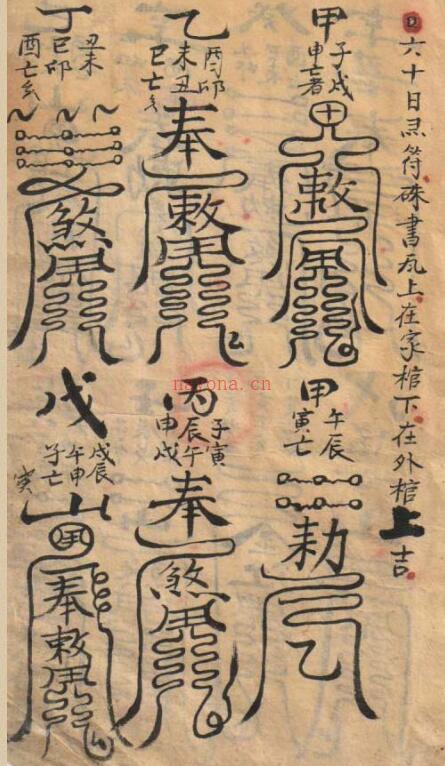 六十日符硃書瓦上在家棺下在外棺上吉
甲
子戌
申亡者
田
敕
乙
酉卯
未丑
巳亡亥
奉
敕
丁
丑未
巳卯
酉亡亥
煞
甲
午辰
寅亡
勅
丙
子寅
辰午
申戌
奉
煞
戊
戌辰
午申
子亡
寅
山
奉
敕
nayona.cn